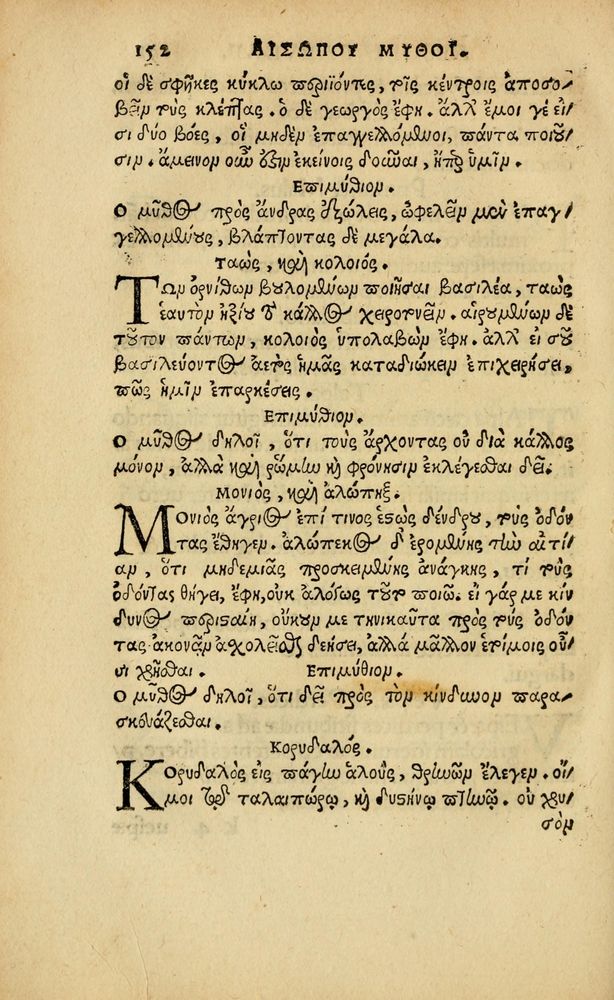 152 ΑΙΣΩΠΟΥ ΜΥΘΟΙ.
οἱ δὲ σφῆκες κύκλω περιϊόντες, τοῖς κέντροις ἀποσο/
βεῖν τοὺς κλέπτας. ὁ δὲ γεωργὸς ἔφη. ἀλλ' ἔμοι γέ εἰ/
σι δύο βόες, οἳ μηδὲν ἐπαγγελλόμενοι, πάντα ποιοῦ/
σιν. ἄμεινον οὖν ὅξιν ἐκείνοις δοῦναι, ἤπερ ὑμῖν.
Ἐπιμύθιον.
Ὁ μῦθος πρὸς ἄνδρας ἐξώλεις, ὠφελεῖν μὲν ἐπαγ/
γελλομένους, βλάπτοντας δὲ μεγάλα.
Ταώς, καὶ κολοιός.
Τῶν ὀρνίθων βουλομένων ποιῆσαι βασιλέα, ταὼς
ἑαυτὸν ἠξίου διὰ κάλλος χειροτονεῖν. αἱρουμένων δὲ
τοῦτον πάντων, κολοιὸς ὑπολαβὼν ἔφη. ἀλλ' εἰ σοῦ
βασιλεύοντος ἀετὸς ἡμᾶς καταδιώκειν ἐπιχειρήσει,
πῶς ἡμῖν ἐπαρκέσεις.
Ἐπιμύθιον.
Ὁ μῦθος δηλοῖ, ὅτι τοὺς ἄρχοντας οὐ διὰ κάλλος
μόνον, ἀλλὰ καὶ ῥώμην καὶ φρόνησιν ἐκλέγεσθαι δεῖ.
Μονιός, καὶ ἀλώπηξ.
Μονιὸς ἄγριος ἐπί τινος ἑστὼς δένδρου, τοὺς ὀδόν
τας ἔθηγεν. ἀλώπεκος δ' ἐρομένης τὴν αἰτί
αν, ὅτι μηδεμιᾶς προσκειμένης ἀνάγκης, τί τοὺς
ὀδόντας θήγει, ἔφη, οὐκ ἀλόγως τοῦτο ποιῶ. εἰ γάρ με κίν
δυνος περισταίη, οὐκοῦν με τηνικαῦτα πρὸς τοὺς ὀδόν
τας ἀκονᾶν ἀσχολεῖσθαι δεήσει, ἀλλὰ μᾶλλον ἑτοίμοις οὖ/
σι χρῆσθαι. Ἐπιμύθιον.
Ὁ μῦθος δηλοῖ, ὅτι δεῖ πρὸς τὸν κίνδυνον παρα/
σκευάζεσθαι.
Κορυδαλός.
Κορυδαλὸς εἰς πάγην ἁλοὺς, θρηνῶν ἔλεγεν. οἴ/
μοι τῷ ταλαιπώρῳ, καὶ δυστήνῳ πτηνῷ. οὐ χρυ/
σὸν